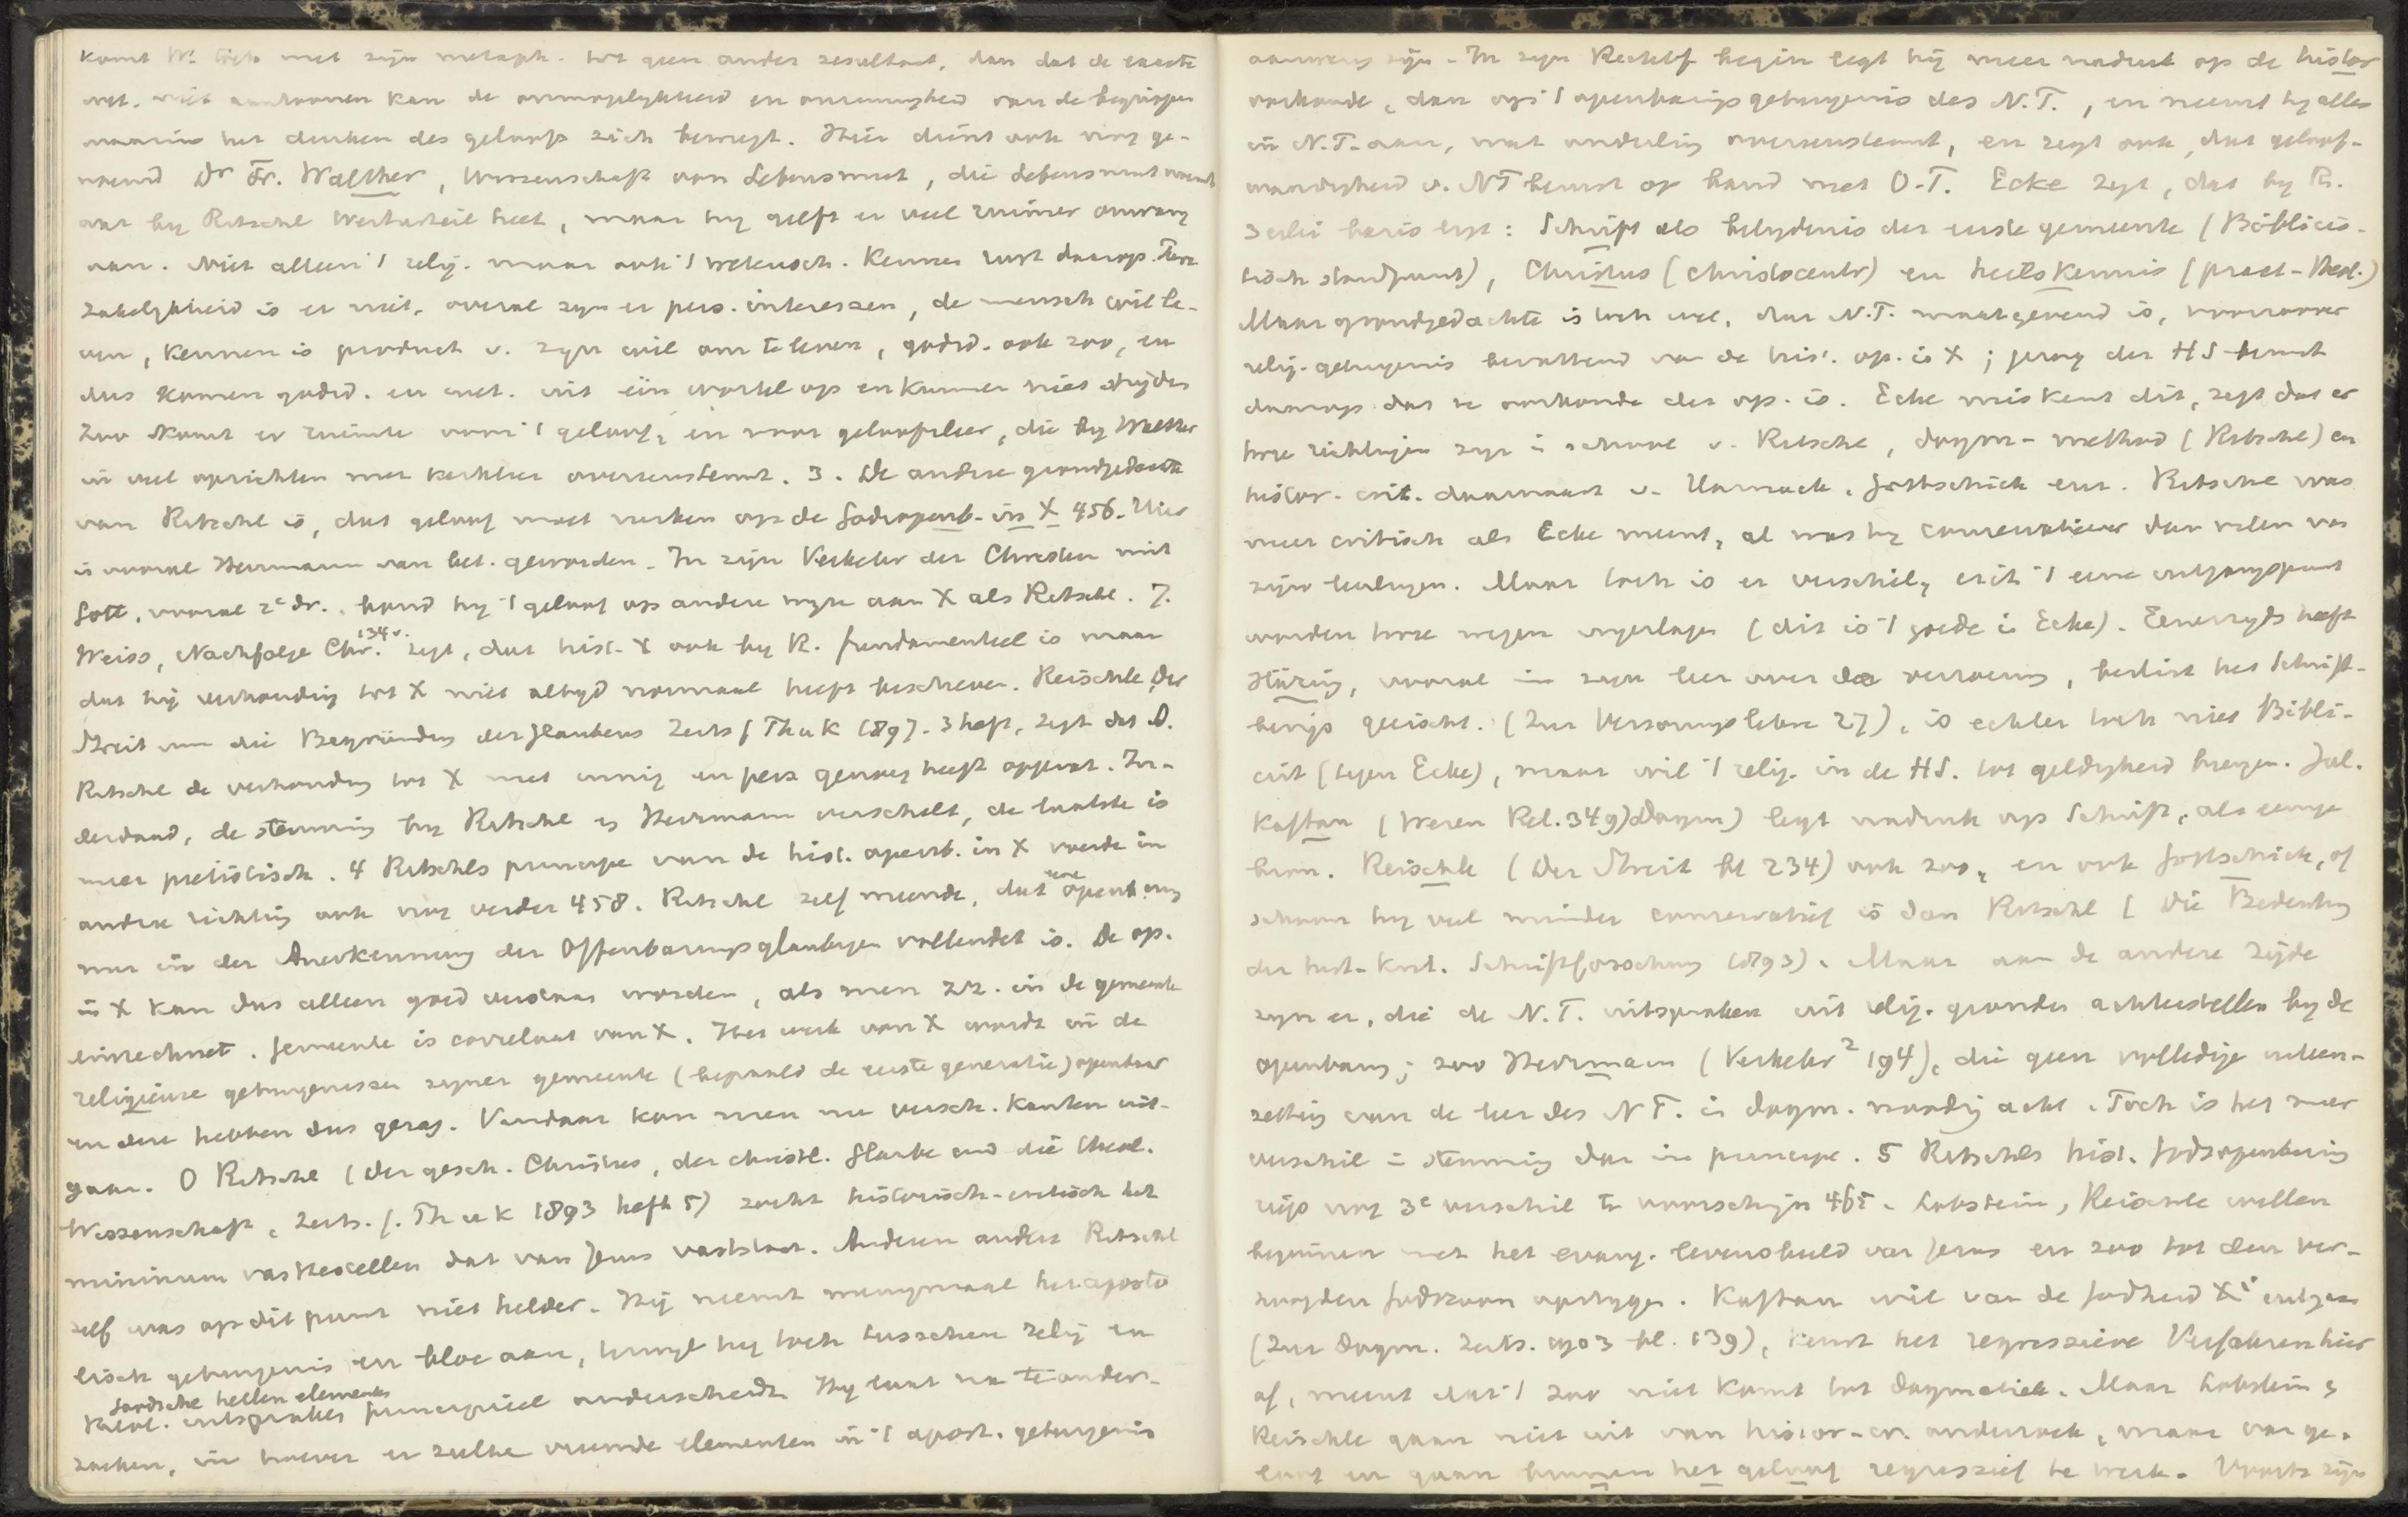 komt W. toch met zijn metaph. tot geen ander resultaat, dan dat de exacte
wet. niet aantoonen kan de onmogelykheid en onrumyheid van de begrippen
waarin het denken des geloofs zich beweegt. Hier dient ook nog ge-
noemd Dr Fr. Walther, Wissenschaft von Lebensmut, die Lebensmut noemt
wat by Ritschl Werturteil heet, maar hy geeft er veel ruimer omvang
aan. Niet alleen 't relig. maar ook 't wetensch. kennen rust daarop. Pure
zakelykheid is er niet, overal zyn er pers. interessen, de mensch wil le-
ven, kennen is product v. zyn wil om te leven, godsd. ook zoo, en
dus komen godsd. en wet. uit één wortel op en kunnen niet stryden
Zoo komt er ruimte voor 't geloof, en voor geloofsleer, die by Walther
in veel opzichten met kerkleer overeenstemt. 3. De andere grondgedachte
van Ritschl is, dat geloof moet rusten op de Godsopenb. in X 456. Hier
is vooral Herrmann van bet. geworden. In zijn Verkehr der Christen mit
Gott, vooral 2e dr., bond hy 't geloof op andere wyze aan X als Ritschl. J.
Weiss, Nachfolge Chr. 134 v. zegt, dat hist. X ook by R. fundamenteel is maar
dat hij verhouding tot X niet altyd normaal heeft beschreven. Reischle, Der
Streit um die Begründung des Glaubens Zeits f Th u K 1897. 3 heft, zegt dat O.
Ritschl de verhouding tot X niet innig en pers genoeg heeft opgevat. In-
derdaad, de stemming by Ritschl en Herrmann verschilt, de laatste is
meer pietistisch. 4 Ritschls principe van de hist. openb. in X voerde in
andere richting ook nog verder 458. Ritschl zelf meende, dat eene openbaring
nur in der Anerkennung der Offenbarungsgläubigen vollendet is. De op.
in X kan dus alleen goed verstaan worden, als men zich in de gemeente
einrechnet. Gemeente is correlaat van X. Het werk van X wordt in de
religieuze getuigenissen zyner gemeente (bepaald de eerste generatie) openbaar
en deze hebben dus gezag. Vandaar kon men nu versch. kanten uit-
gaan. O Ritschl (Der gesch. Christus, der christl. Glaube und die theol.
Wissenschaft, Zeits. f. Th u K 1893 heft 5) zocht historisch-critisch het
minimum vasttestellen dat van Jezus vaststaat. Anderen anders Ritschl
zelf was op dit punt niet helder. Hij neemt menigmaal het aposto
lisch getuigenis en bloc aan, terwyl hy toch tusschen relig en
theol. uitspraken Joodsche hellen elementen principieel onderscheidt. Hy laat na te onder-
zoeken, in hoever er zulke vreemde elementen in 't apost. getuigenis
aanwezig zijn. In zyn Rechtf begin legt hij meer nadruk op de histor
oorkonde, dan op 't openbarings getuigenis des N.T., en neemt hy alles
in N.T. aan, wat onderling overeenstemt, en zegt ook, dat geloof-
waardigheid v. NT berust op band met O.T. Ecke zegt, dat by R.
3erlei basis ligt: Schrift als belydenis der eerste gemeente (Biblicis-
tisch standpunt), Christus (christocentr) en heilskennis (pract-theol.)
Maar grondgedachte is toch wel, dat N.T. maatgevend is, voorzoover
relig. getuigenis bevattend van de hist. op. in X; gezag der HS berust
daarop dat ze oorkonde der op. is. Ecke miskent dit, zegt dat er
twee richtingen zyn in school v. Ritschl, dogm-method (Ritschl) en
histor. crit. daarnaast v. Harnack, Gottschick enz. Ritschl was
meer critisch als Ecke meent, al was hy conservatiever dan velen van
zijn leerlingen. Maar toch is er verschil, uit 't eene uitgangspunt
worden twee wegen ingeslagen (dit is 't goede in Ecke). Eenerzyds heeft
Häring, vooral in zyn leer over de verzoening, beslist het Schrift-
bewijs geeischt. (Zur Versöhnungslehre 27), is echter toch niet Bibli-
cist (tegen Ecke), maar wil 't relig. in de HS. tot geldigheid brengen. Jul.
Kaftan (Wesen Rel. 349) Dogm) legt nadruk op Schrift, als eenige
bron. Reischle (Der Streit bl 234) ook zoo, en ook Gottschick, of
schoon hy veel minder conservatief is dan Ritschl (Die Bedeutung
der hist-krit. Schriftforschung 1893). Maar aan de andere zijde
zyn er, die de N.T. uitspraken uit relig. gronden achterstellen by de
openbaring; zoo Herrmann (Verkehr² 194), die geen volledige uiteen-
zetting van de leer des N T. in dogm. noodig acht. Toch is het meer
verschil in stemming dan in principe. 5 Ritschls hist. Godsopenbaring
riep nog 3e verschil te voorschijn 465. Lobstein, Reischle willen
beginnen met het evang. levensbeeld van Jezus en zoo tot den ver-
hoogden Godszoon opstygen. Kaftan wil van de Godheid Xi uitgaan
(Zur Dogm. Zeits. 1903 bl. 139), keurt het regressieve Verfahren hier
af, meent dat 't zoo niet komt tot dogmatiek. Maar Lobstein &
Reischle gaan niet uit van histor-cr. onderzoek, maar van ge-
loof en gaan binnen het geloof regressief te werk. Voorts zijn